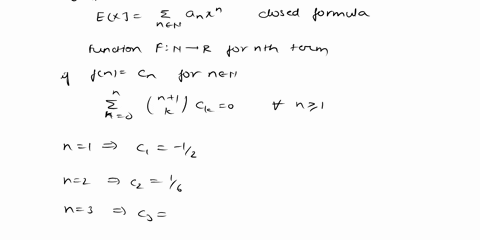 E(x) = ∑_{n∈N} a_n x^n closed formula
function F: N → R for nth term
if f(n) = C_n for n∈N
∑_{k=0}^{n} (n+1 k) C_k = 0 ∀ n ≥ 1
n=1 ⇒ C_1 = -1/2
n=2 ⇒ C_2 = 1/6
n=3 ⇒ C_3 =